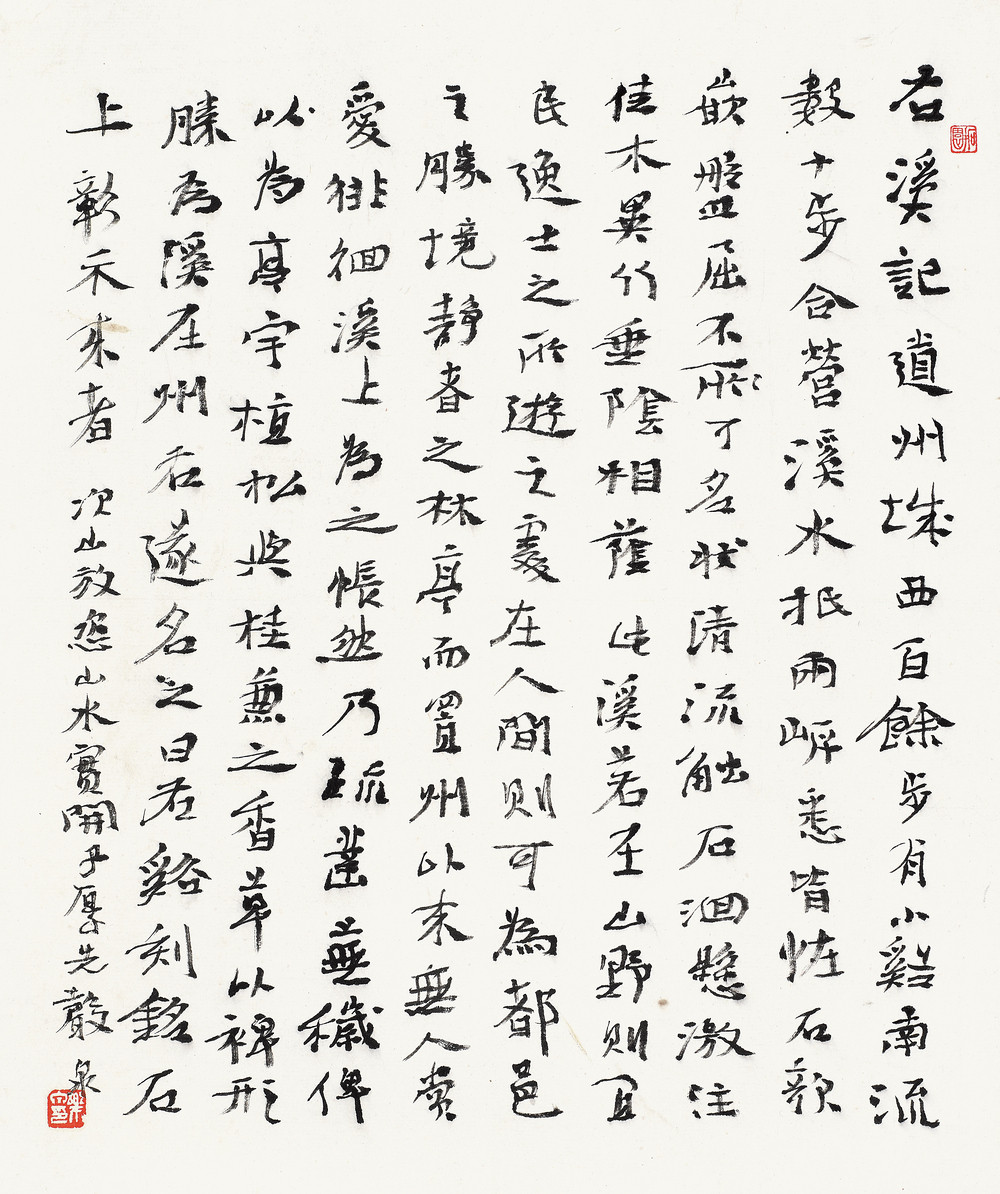 右溪記道州城西百餘步有小谿南流
數十步合營溪水抵兩岸悉皆怪石欹
嵌盤屈不所可名狀清流觸石洄懸激注
佳木異竹垂陰相蔭此溪若在山野則宜
民逸士之所遊之處在人間則可為都邑
之勝境靜者之林亭而置州以來無人賞
愛徘徊溪上為之悵然乃疏鑿蕪穢俾
以為亭宇植松與桂兼之香草以裨形
勝為溪在州右遂名之曰右谿刻銘石
上彰示來者 次山放恣山水實開子厚先聲 泉